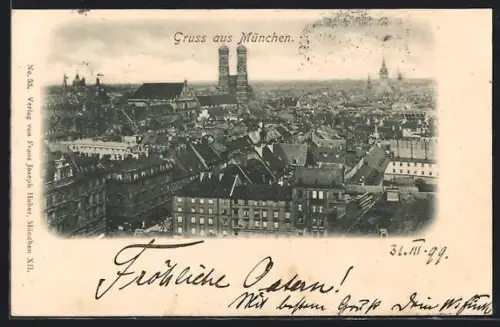 Gruss aus München.
No. 33. Verlag von Franz Joseph Huber, München XII.
31. III. 99.
Fröhliche Ostern!
Mit bestem Gruß Dein